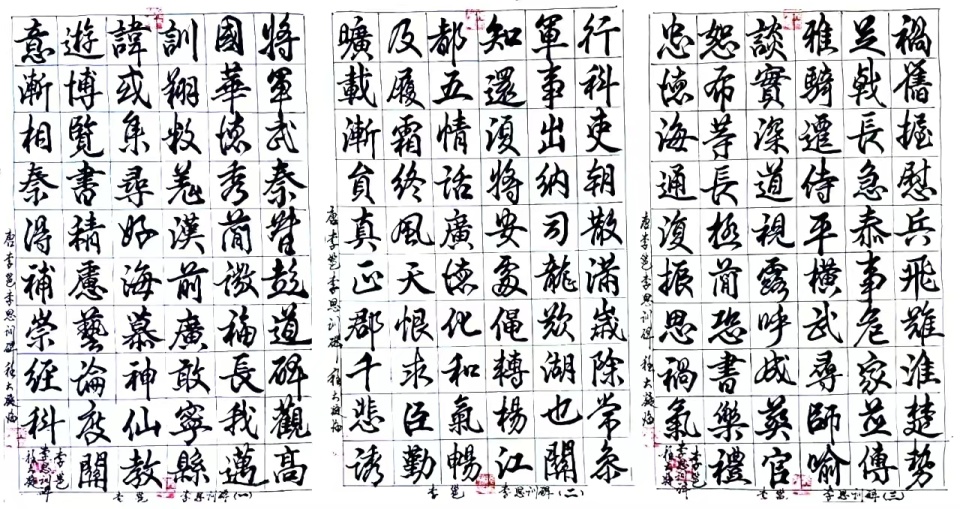 將軍武秦彭道碑觀高
國華德秀簡微福長我邁
訓翔救羌漢前廣敢寧縣
諱或集尋好海慕神仙教
遊博覽書精慮藝論度開
意漸相秦得補榮經科
唐李邕李思训碑
李邕
李思训碑
李邕 李思训碑(一)
行科吏朝散滿歲除常参
軍事出納司龍歎湖也關
知還須將安處俾轉楊江
都五情話廣德化和氣暢
及履霜終風天恨求臣勤
曠載漸負真正郡千悲誘
唐李邕李思训碑
李邕 李思训碑(二)
禍舊握慰兵飛雖淮楚勢
足戟長急泰事危家並傳
雅騎遷侍平橫武尋師喻
談實深道視露呼成葬官
恕布等長極簡恐書樂禮
忠德海通復振思禍氣
唐李邕李思训碑
李邕
李思训碑
李邕 李思训碑(三)